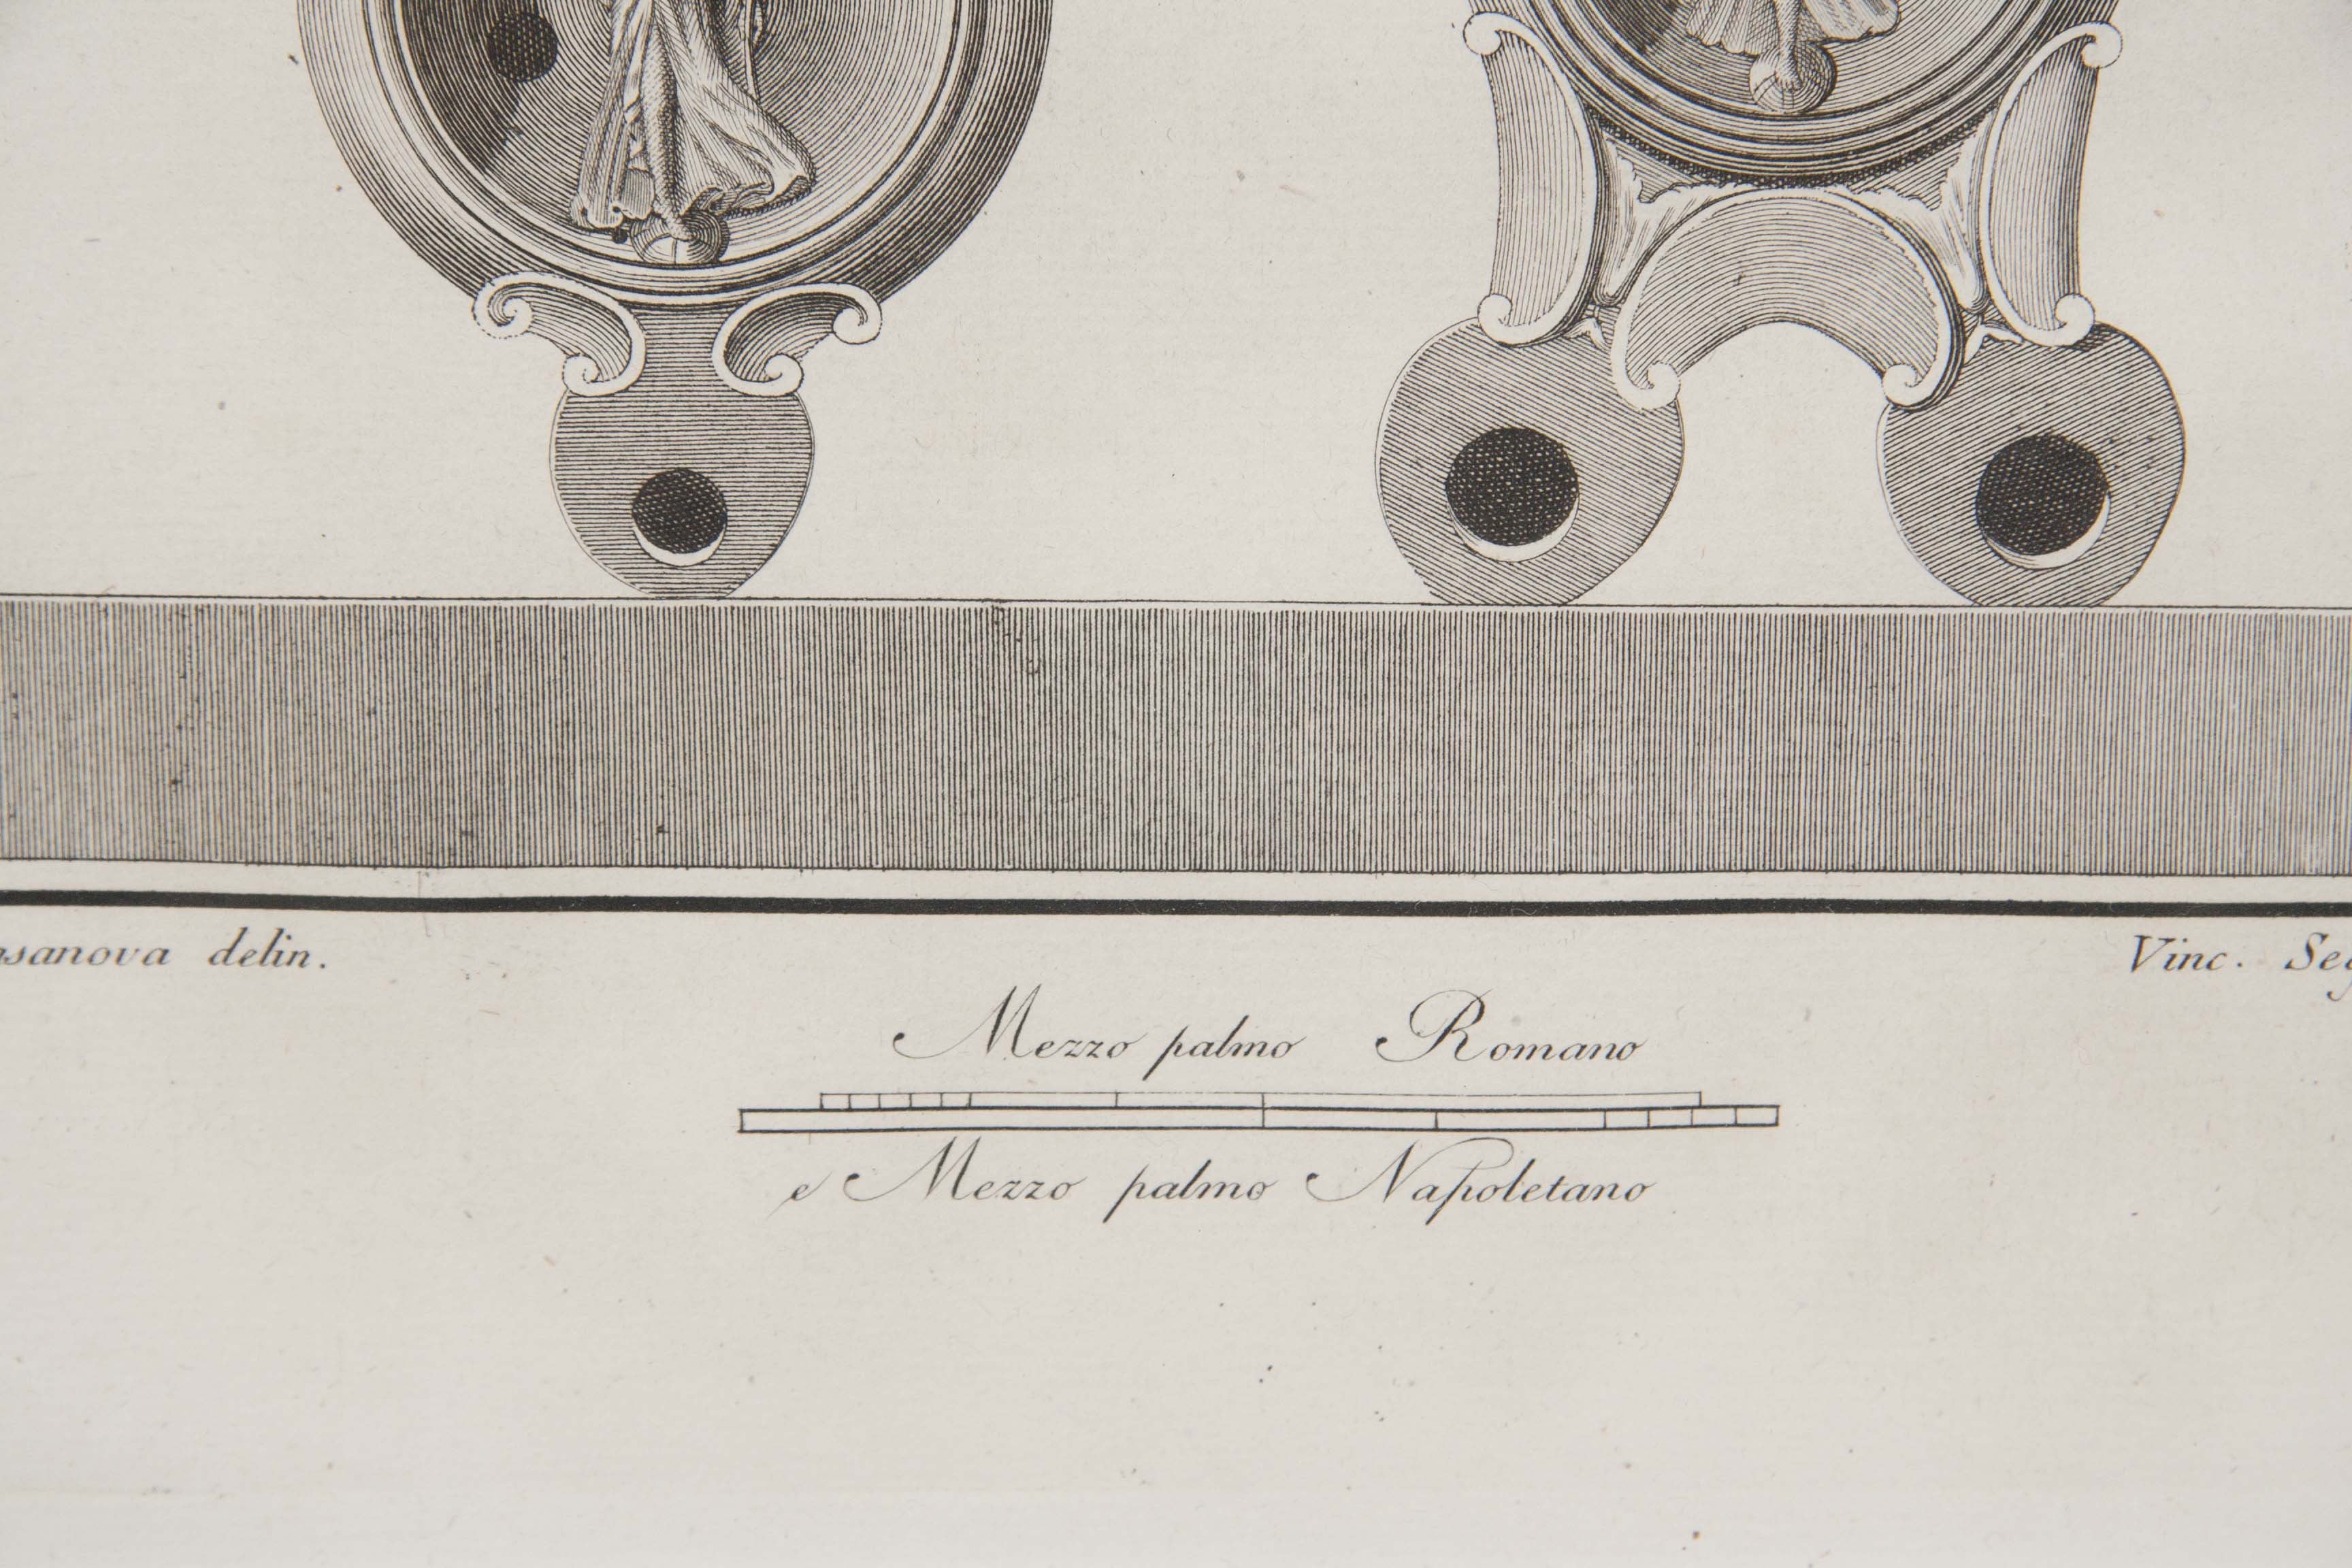 delin.
Vinc.
Mezzo palmo Romano
e Mezzo palmo Napoletano